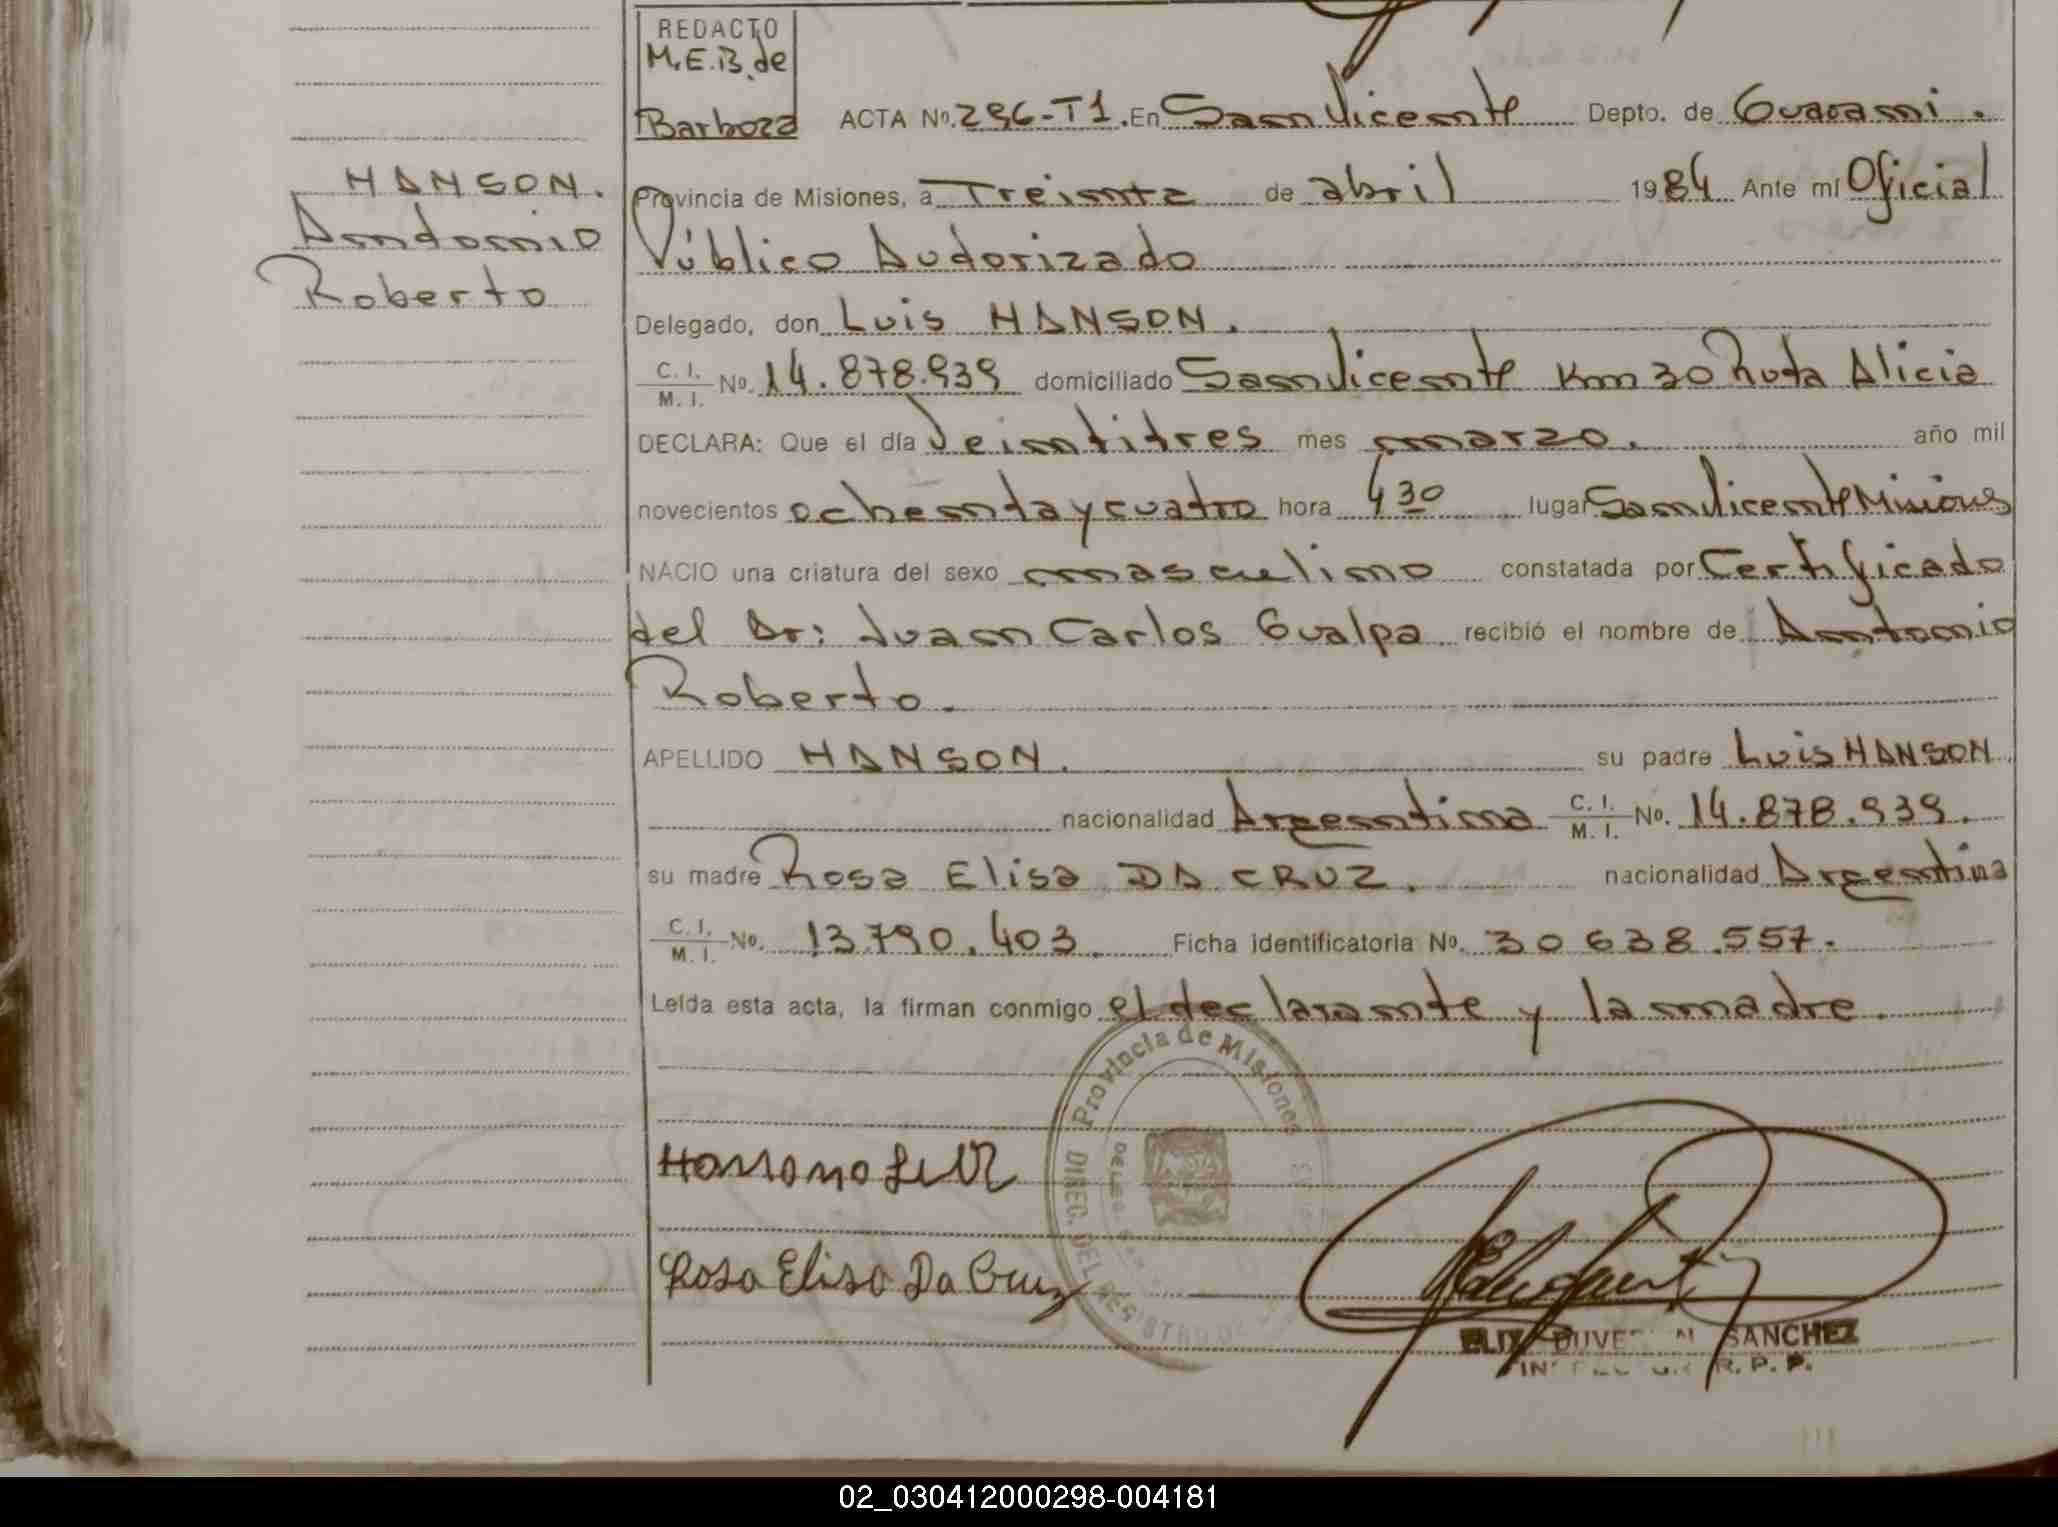 REDACTO
M.E.B. de
Barboza
ACTA Nº. 296-T1. En San Vicente Depto. de Guarani.
HANSON.
Antonio
Roberto
Provincia de Misiones, a Treinta de abril 1984 Ante mí Oficial
Público Autorizado
Delegado, don Luis HANSON.
C. I. / M. I. Nº. 14.878.939 domiciliado San Vicente Km 30 Ruta Alicia
DECLARA: Que el día Veintitres mes marzo. año mil
novecientos ochenta y cuatro hora 4 30 lugar San Vicente Misiones
NACIO una criatura del sexo masculino constatada por Certificado
del Dr: Juan Carlos Gualpa recibió el nombre de Antonio
Roberto.
APELLIDO HANSON. su padre Luis HANSON
nacionalidad Argentina C. I. / M. I. Nº. 14.878.939.
su madre Rosa Elisa DA CRUZ. nacionalidad Argentina
C. I. / M. I. Nº. 13.790.403. Ficha identificatoria Nº. 30 638.557.
Leída esta acta, la firman conmigo el declarante y la madre.
Provincia de Misiones
DIREC. DEL REGISTRO DE
Rosa Elisa Da Cruz
SANCHEZ
R. P. P.
02_030412000298-004181